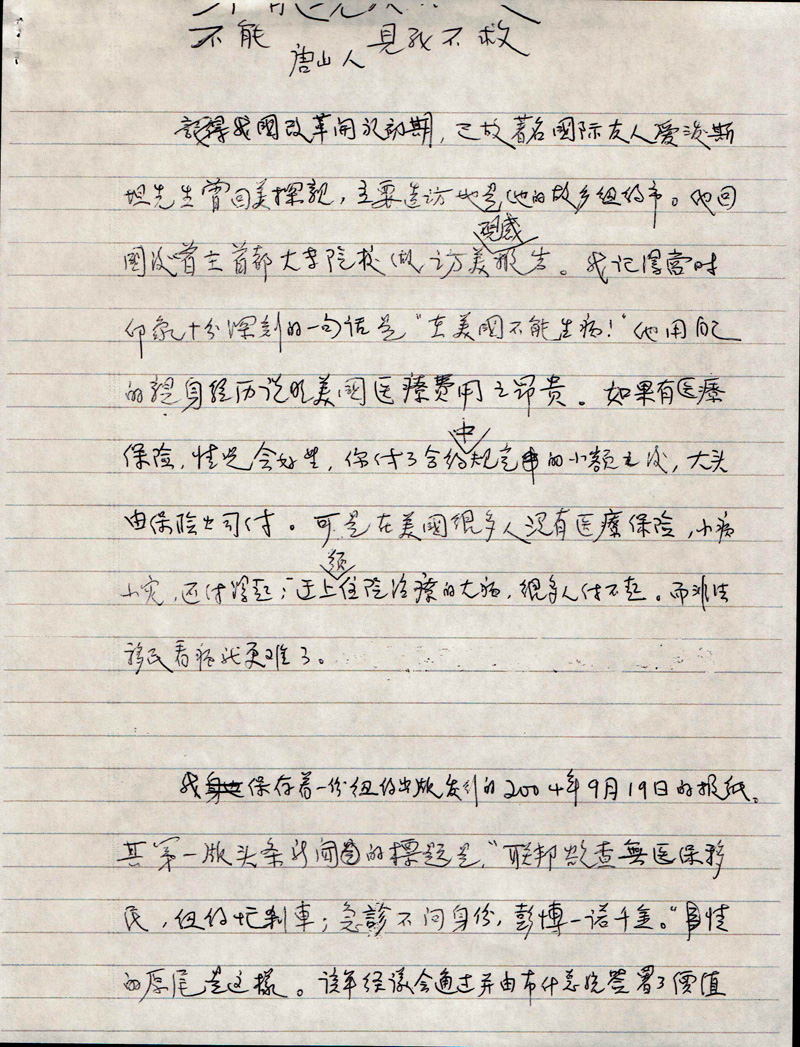 不能 見死不救
唐山人
記得我國改革開放初期，已故著名國际友人爱泼斯
坦先生曾回美探親，主要造访地是他的故乡纽约市。他回
國後曾在首都大李院校做访美观感报告。我记得當时
印象十分深刻的一句话是“在美國不能生病！”他用自己
的親身经历说明美國医療费用之昂贵。如果有医療
保险，情况会好些，你付了合约规定中的小额之後，大头
由保险公司付。可是在美國很多人没有医療保险，小病
小灾，还付得起；遇上须住院治療的大病，很多人付不起。而非法
移民看病就更难了。
我保存着一份纽约出版发行的2004年9月19日的报纸。
其第一版头条新闻的標題是，“联邦欲查無医保移
民，纽约忙刹車；急診不问身份，彭博一诺千金。”事情
的原尾是这樣。该年经议会通过并由布什总统签署了價值